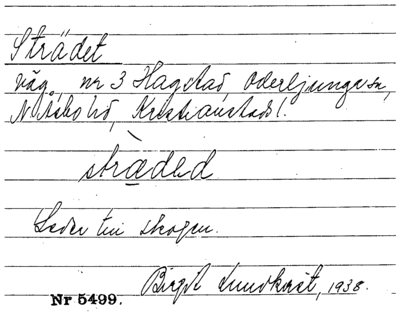 Strädet
väg, nr 3 Hagstad, Oderljunga sn,
N. Åsbo hd, Kristianstads l.
strædəd
Leder till skogen.
Birgit Lundkvist, 1938.
Nr 5499.